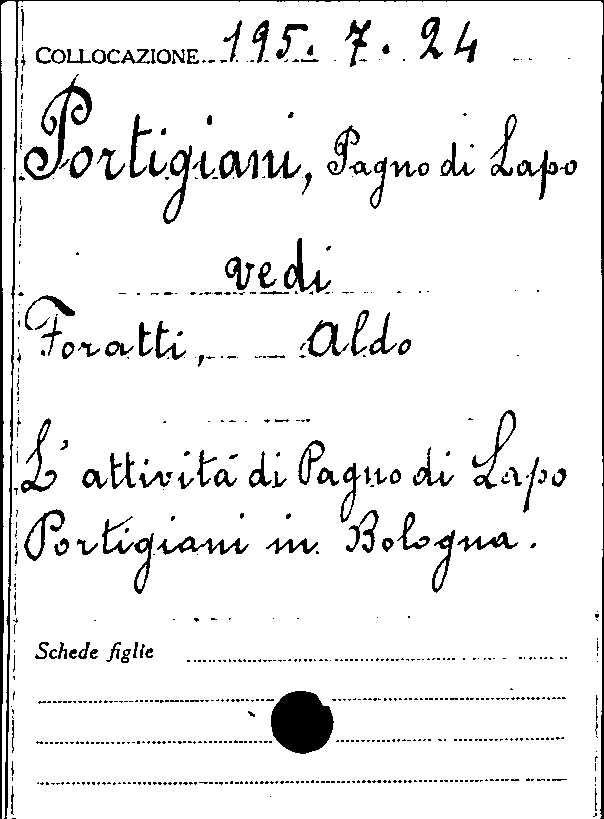 COLLOCAZIONE 195. 7. 24
Portigiani, Pagno di Lapo
vedi
Foratti, Aldo
L'attività di Pagno di Lapo
Portigiani in Bologna.
Schede figlie